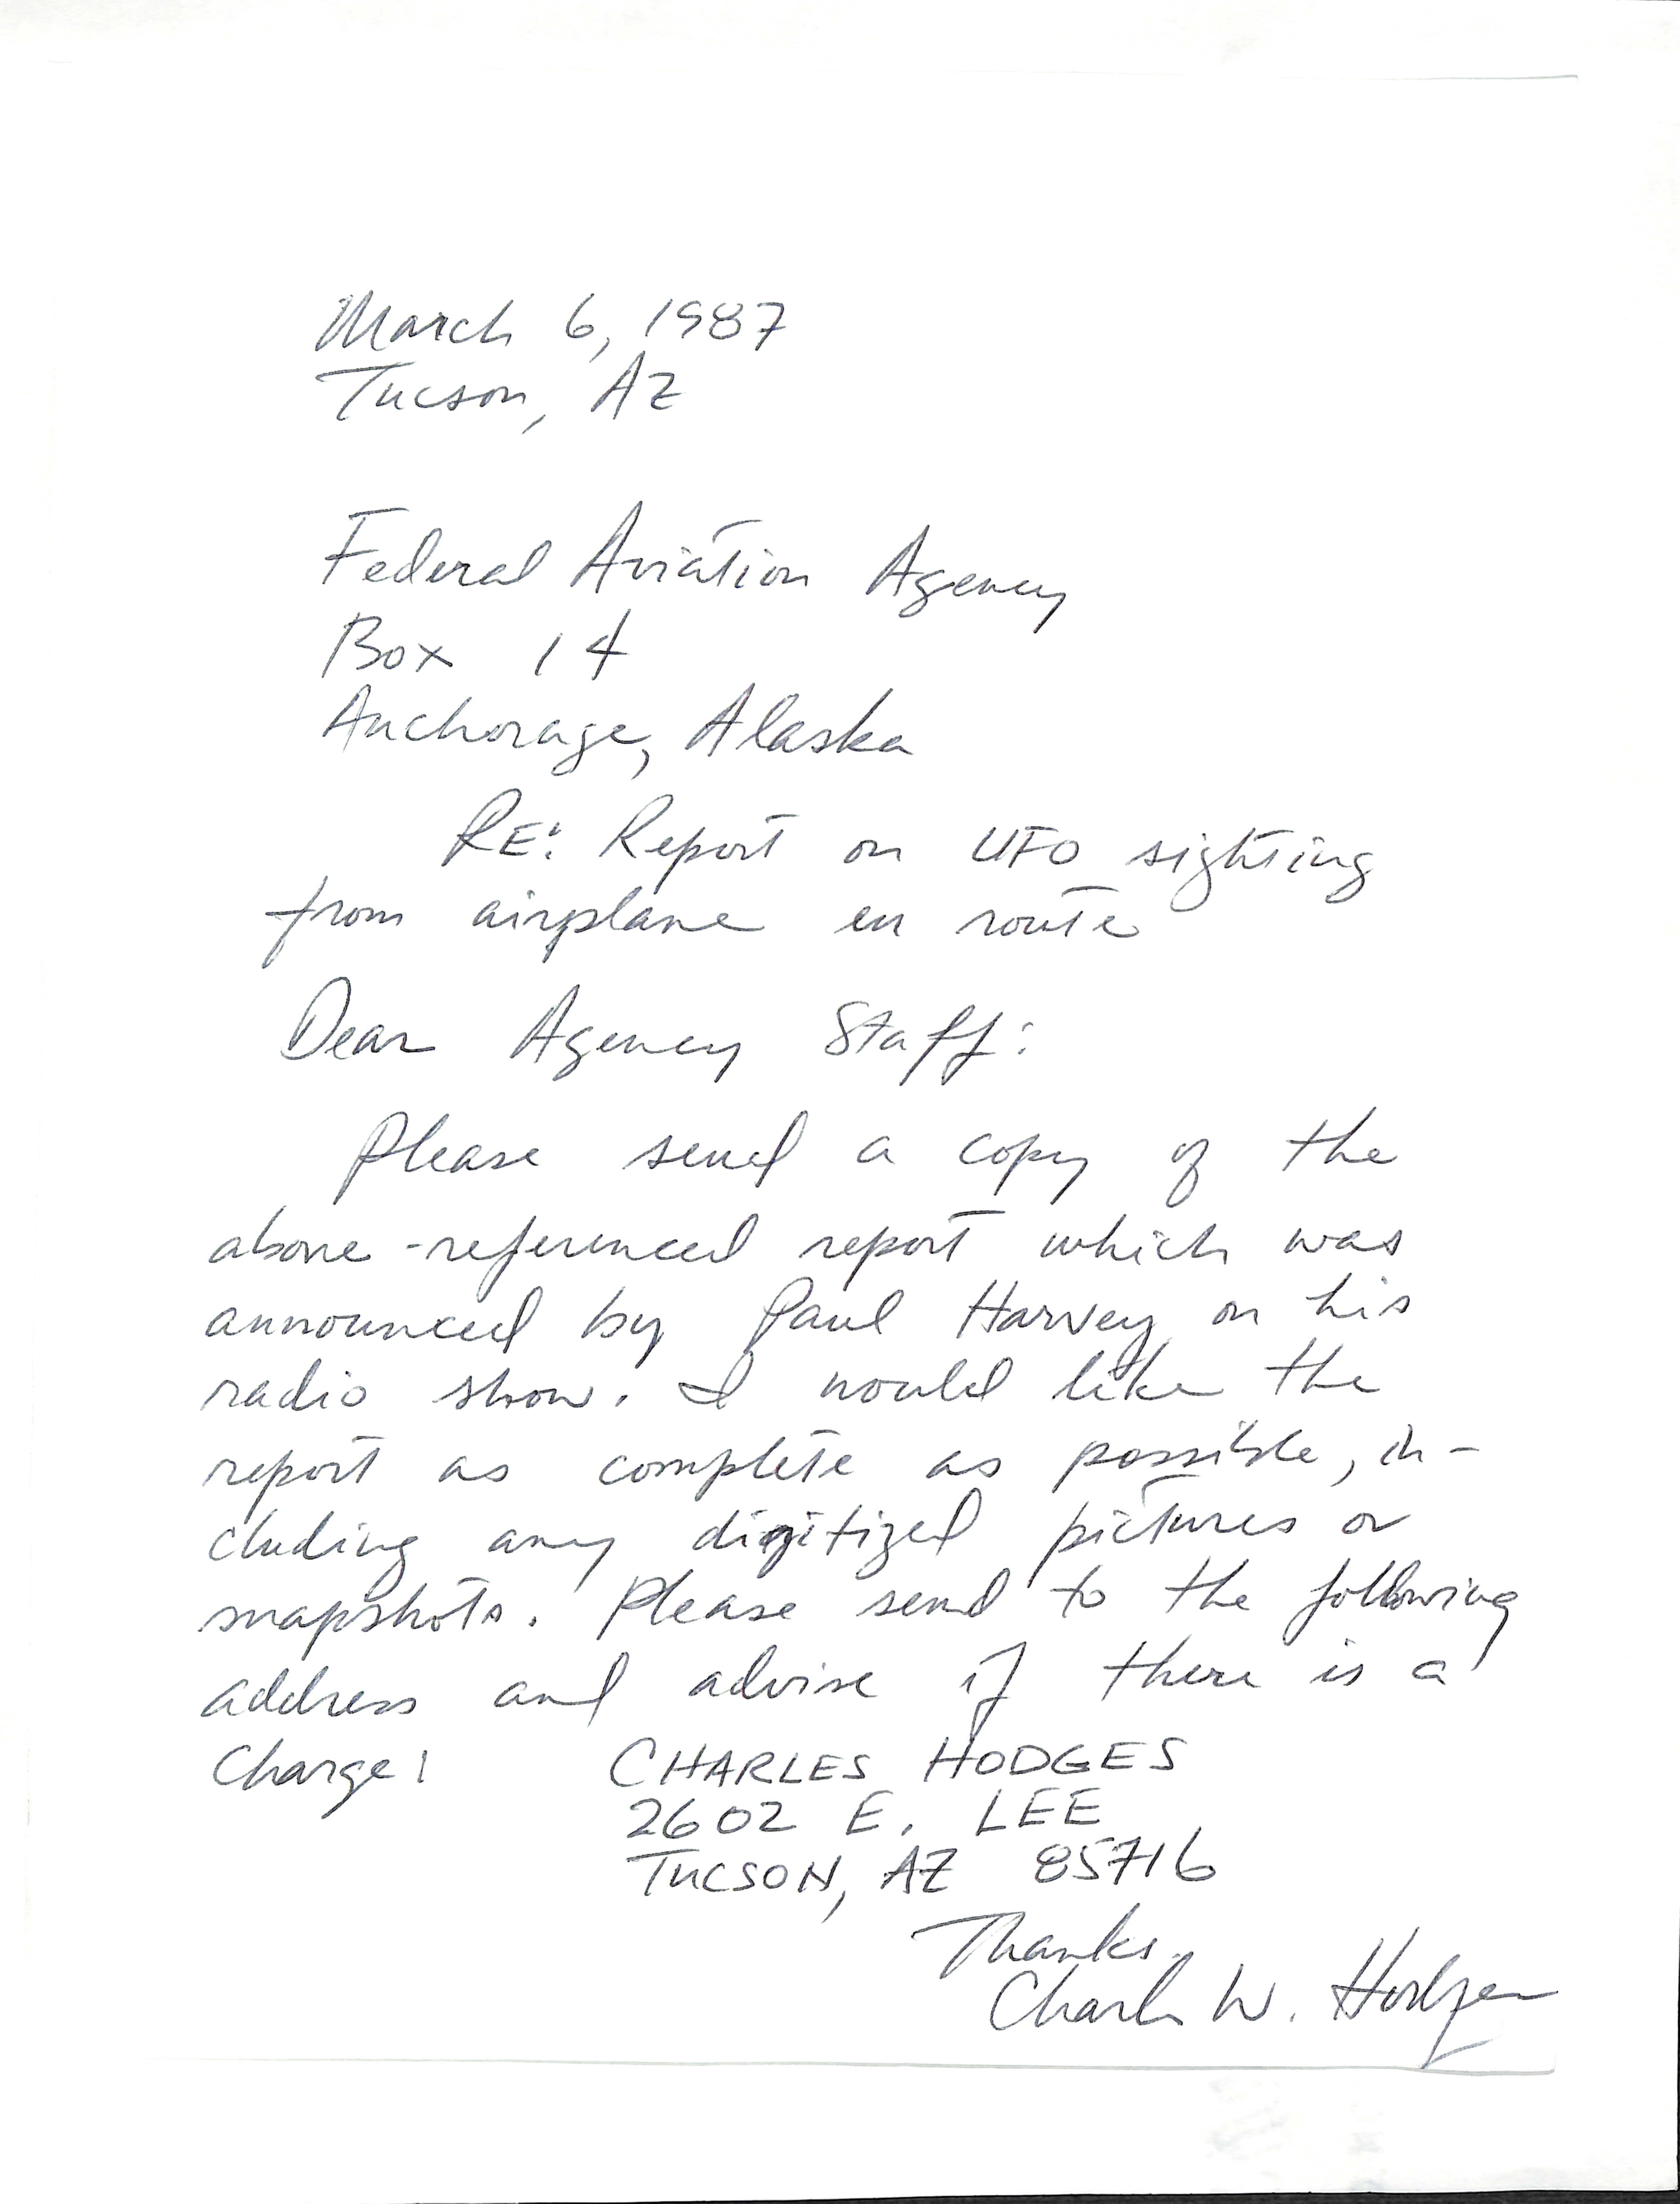 March 6, 1987
Tucson, AZ
Federal Aviation Agency
Box 14
Anchorage, Alaska
RE: Report on UFO sighting
from airplane en route
Dear Agency Staff:
Please send a copy of the
above-referenced report which was
announced by Paul Harvey on his
radio show. I would like the
report as complete as possible, in-
cluding any digitized pictures or
snapshots. Please send to the following
address and advise if there is a
charge:
CHARLES HODGES
2602 E. LEE
TUCSON, AZ 85716
Thanks,
Charles W. Hodges